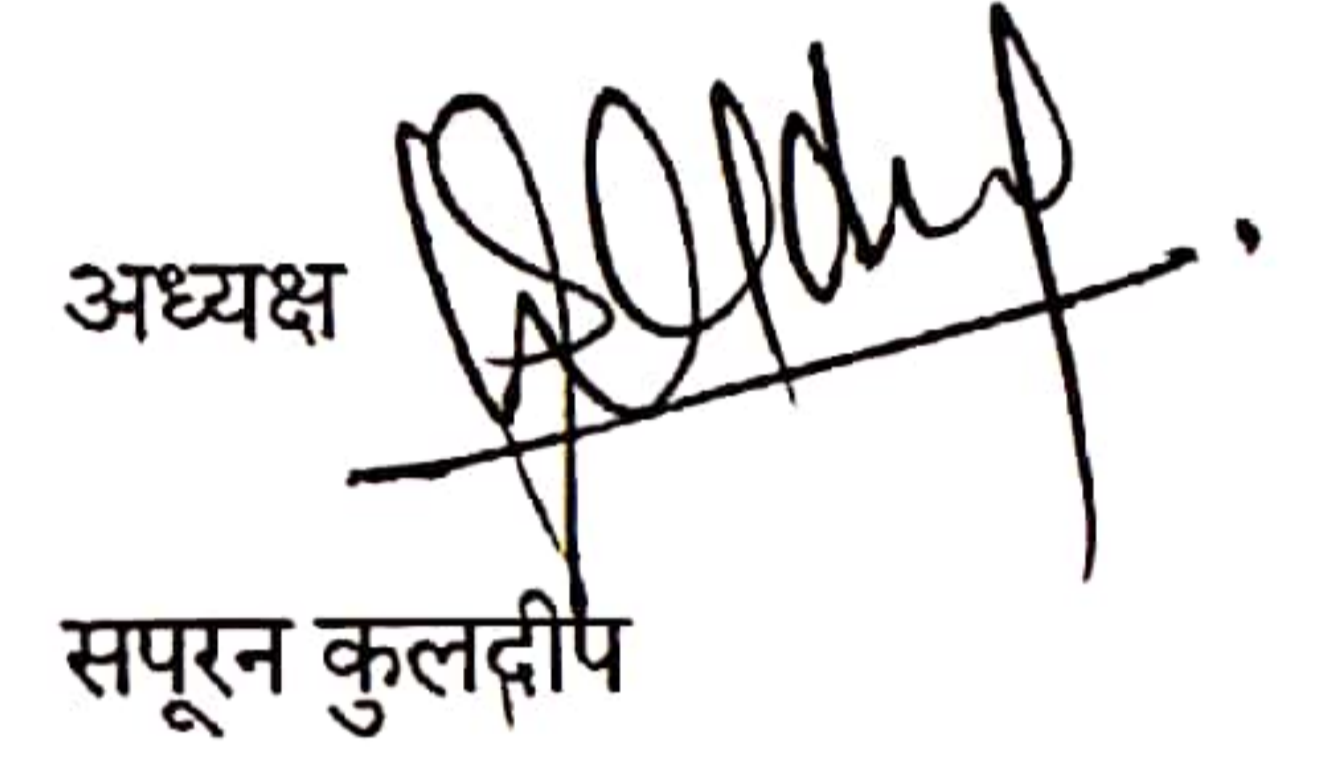 अध्यक्ष
सपूरन कुलदीप